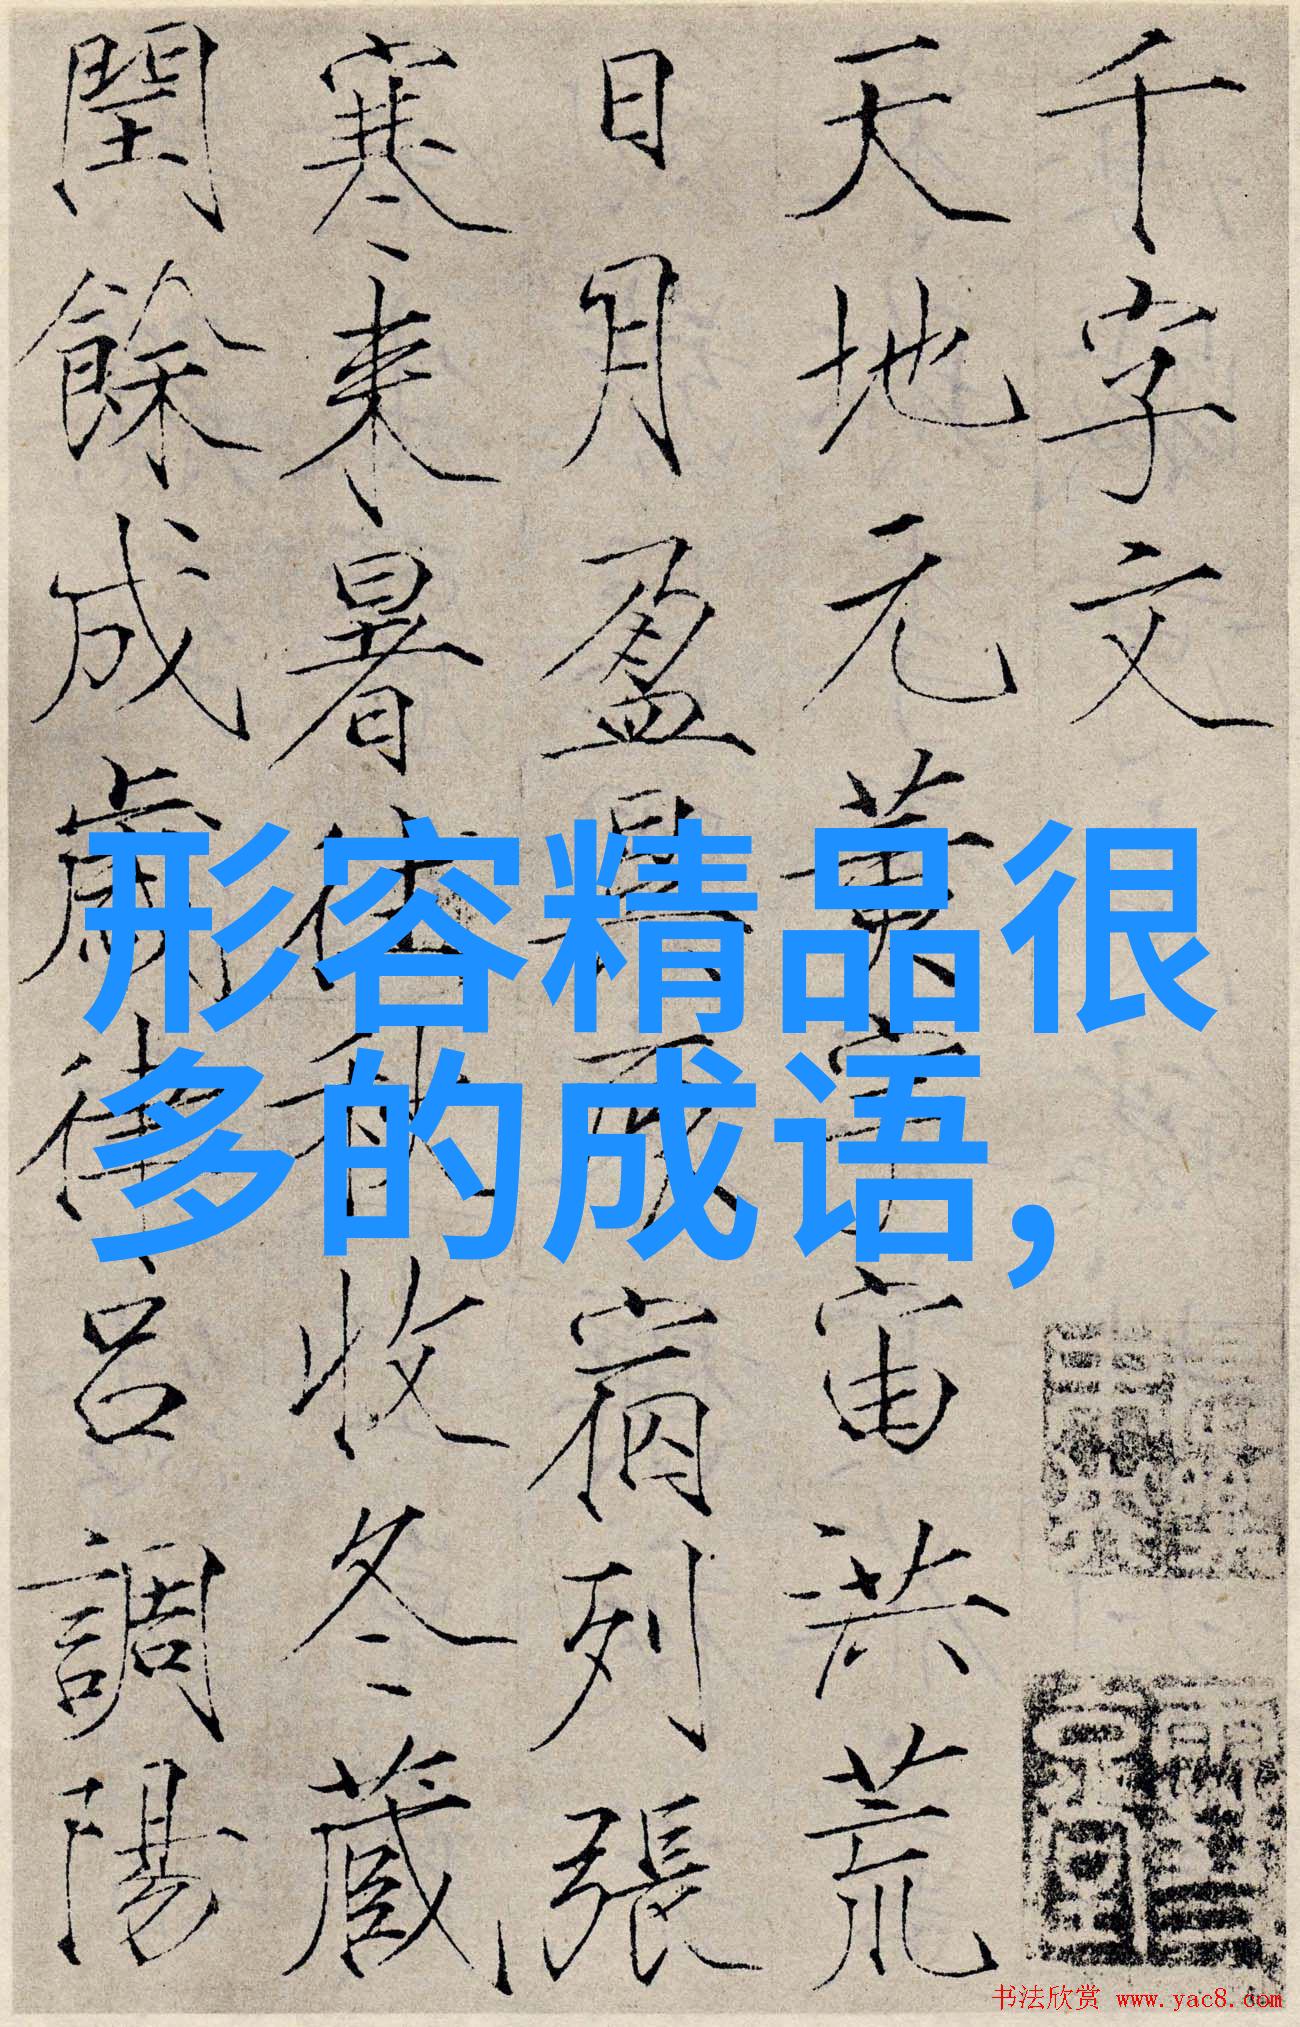 千字文
天地元黄宇宙洪荒
日月盈昃辰宿列張
寒来暑往秋收冬藏
閏餘成歲律呂調陽
形容精品很
多的成语,
书法欣赏 www.yac8.com